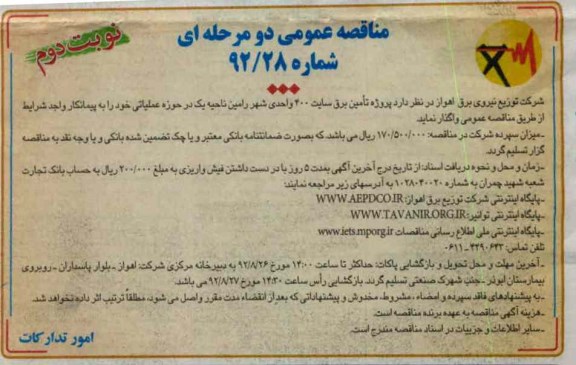 مناقصه عمومی دو مرحله ای
شماره ۹۲/۲۸
نوبت دوم
شرکت توزیع نیروی برق اهواز در نظر دارد پروژه تأمین برق سایت ۴۰۰ واحدی شهر رامین ناحیه یک در حوزه عملیاتی خود را به پیمانکار واجد شرایط
از طریق مناقصه عمومی واگذار نماید.
ـ میزان سپرده شرکت در مناقصه: ۱۷۰/۵۰۰/۰۰۰ ریال می باشد. که بصورت ضمانتنامه بانکی معتبر و یا چک تضمین شده بانکی و یا وجه نقد به مناقصه
گزار تسلیم گردد.
ـ زمان و محل و نحوه دریافت اسناد: از تاریخ درج آخرین آگهی بمدت ۵ روز با در دست داشتن فیش واریزی به مبلغ ۲۰۰/۰۰۰ ریال به حساب بانک تجارت
شعبه شهید چمران به شماره ۱۰۲۸۰۲۰۰۲۰ به آدرسهای زیر مراجعه نمایند:
ـ پایگاه اینترنتی شرکت توزیع برق اهواز: WWW.AEPDCO.IR
ـ پایگاه اینترنتی توانیر: WWW.TAVANIR.ORG.IR
ـ پایگاه اینترنتی ملی اطلاع رسانی مناقصات www.iets.mporg.ir
تلفن تماس: ۴۴۹۰۶۴۲ـ۰۶۱۱
ـ آخرین مهلت و محل تحویل و بازگشایی پاکات: حداکثر تا ساعت ۱۴:۰۰ مورخ ۹۲/۸/۲۶ به دبیرخانه مرکزی شرکت: اهواز ـ بلوار پاسداران ـ روبروی
بیمارستان ابوذر ـ جنب شهرک صنعتی تسلیم گردد. بازگشایی رأس ساعت ۱۴:۳۰ مورخ ۹۲/۸/۲۷ می باشد.
ـ به پیشنهادهای فاقد سپرده و امضاء ، مشروط، مخدوش و پیشنهاداتی که بعد از انقضاء مدت مقرر واصل می شود، مطلقاً ترتیب اثر داده نخواهد شد.
ـ هزینه آگهی مناقصه به عهده برنده مناقصه است.
ـ سایر اطلاعات و جزییات در اسناد مناقصه مندرج است.
امور تدارکات